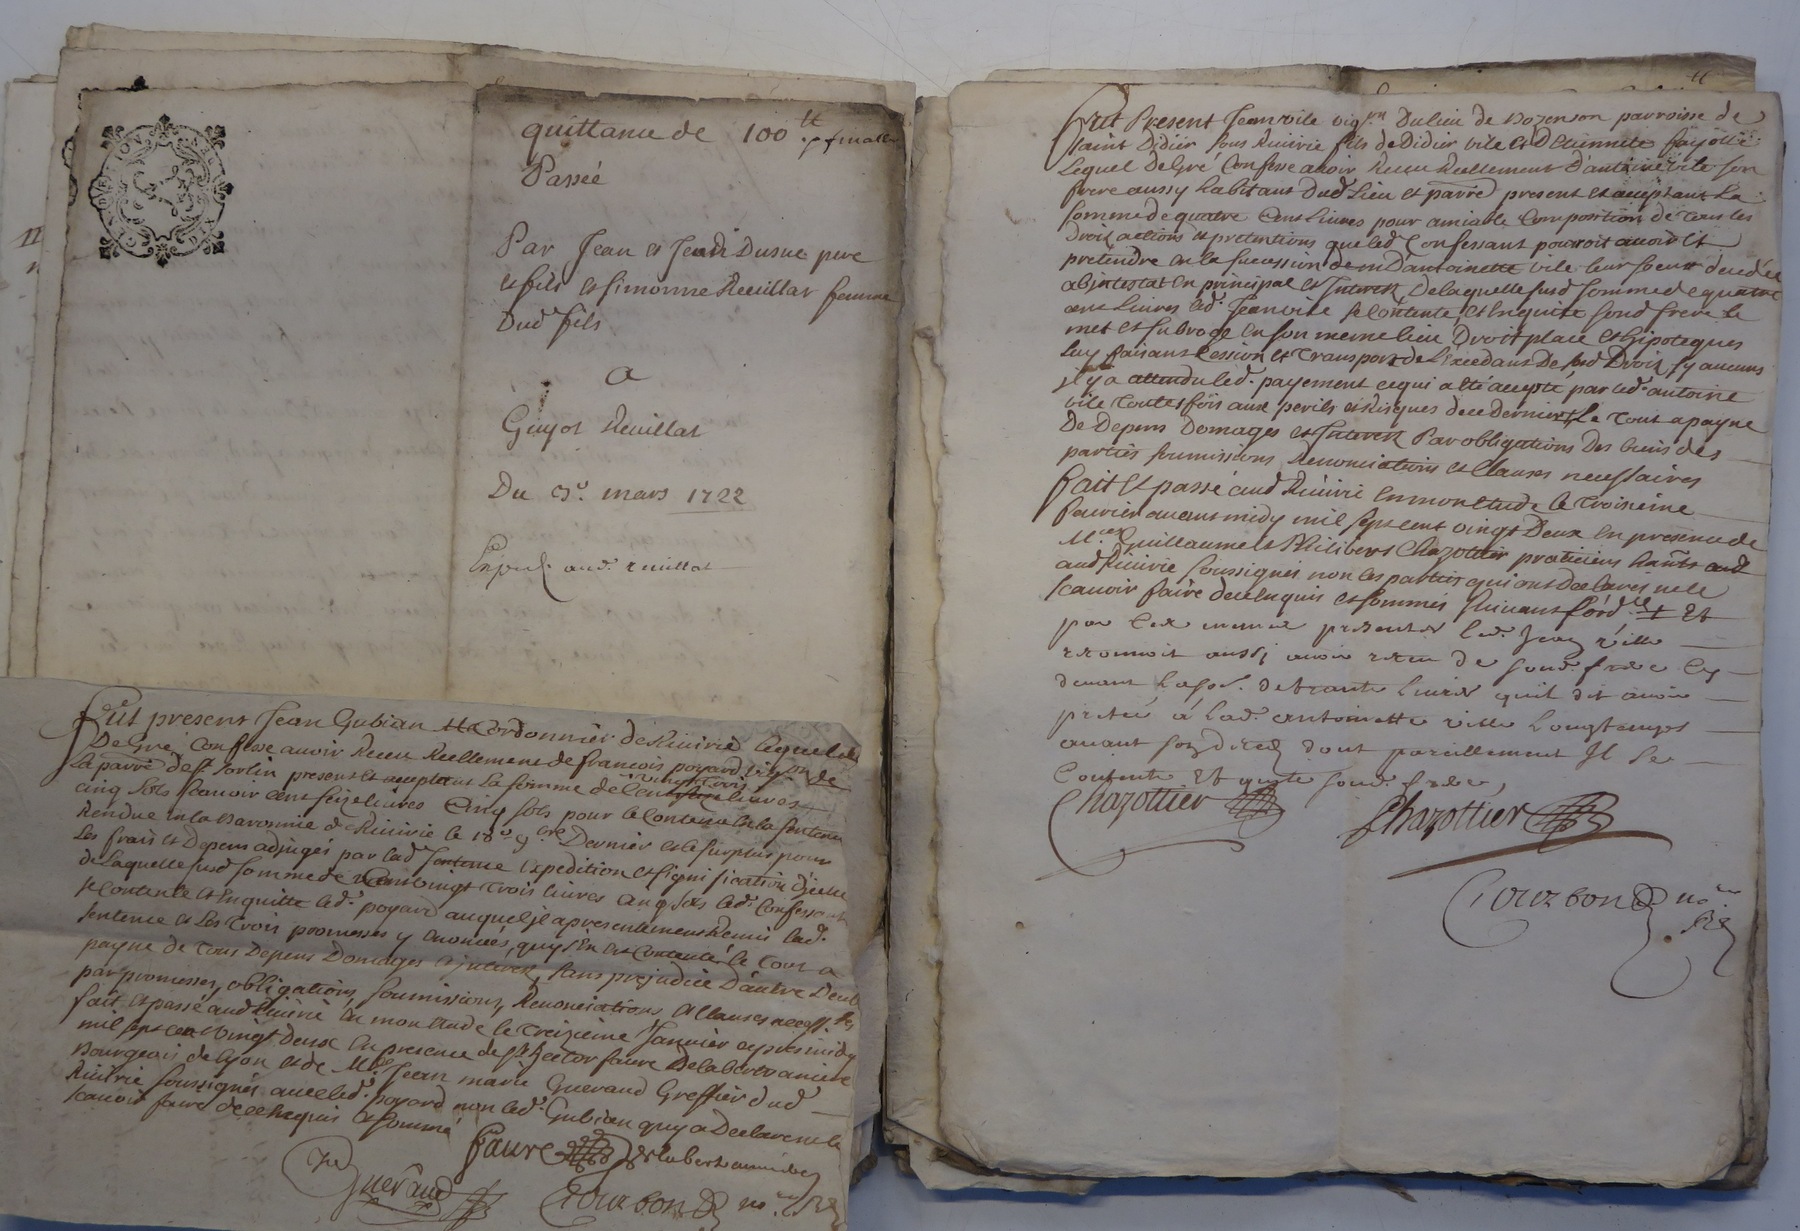 quittance de 100 tt p finalle
Passée
Par Jean et Jean Dusuc pere
et fils et simonne Reuillat femme
Dud fils
a
Guyot Reuillat
Du 3e. mars 1722
Exped. aud. reuillat
fut present Jean Gubian cordonnier de Riuirie lequel de
De Gré confesse auoir Receu Reellement de francois poyard vigron de
La parre de st sorlin present et acceptant La somme de Cent vingt trois liures
cinq sols scauoir cent seize liures cinq sols pour le Contenu en la sentence
Rendue en la Baronnie de Riuirie le 18e 9bre Dernier et le surplus pour
Les frais et Depens adjugés par lad sentence expedition et signification d'jcelle
de Laquelle susd somme de Cent vingt trois liures cinq sols led. Confessant
se Contente et En quitte led. poyard auquel jl a presentement Remis lad.
sentence et Les Trois promesses y enoncées, quy s'En est Contenté le Tout a
payne de Tous Depens Domages et jnterest, sans prejudice D'autre Deub
par promesses, obligations, soumissions, Renonciations et clauses necess.res
fait et passé aud Riuirie en mon etude le treizieme Januier apres midy
mil sept cent vingt deux en presence de sr hector faure Delabertoaniere
Bourgeois de Lyon et de Me Jean marie Gueraud Greffier dud
Riuirie soussignés auec led. poyard non led. Gubian quy a Declaré ne le
scauoir faire de ce Enquis et sommé
faure delabertoaniere
Gueraud Tourbon no.re R.
fut Present Jean vile vigron Du lieu de Bozenson parroisse de
saint Didier sous Riuirie fils de Didier vile et D'Etiennette fayolle
Lequel de Gré Confesse auoir Receu Reellement D'antoine vile son
frere aussy habitant dud. Lieu et parre present et acceptant La
somme de quatre Cent Liures pour amiable Composition de tous les
Droit actions et pretentions que led. Confessant pouroit auoir et
pretendre en la succession de D'antoinette vile leur soeur decedée
abjntestat en principal et jnterest De laquelle susd somme de quatre
cent Liures led. Jean vile se Contente, et En quite sond frere Le
met et subroge en son meme lieu Droit place et hipoteques
Luy faisant Cession et Transport de L'excedant De sesd Droit, sy aucuns
jl y a attendu led. payement ce qui a eté accepté par led. antoine
vile Toutesfois aux perils et Risques de ce Dernier, Le Tout a payne
De Depens Domages et jnterest Par obligations Des biens des
parties soumissions Renonciations et clauses necessaires
fait et passé aud Riuirie en mon etude le Troisieme
feurier auant midy mil sept cent vingt Deux en presence de
M.es Guillaume et Philibert Chazottier praticiens hants aud
aud Riuirie soussignés non les parties qui ont Declarés ne le
scauoir faire de ce Enquis et sommés suiuant l'ord.ce + Et
par les mesmes presentes led. Jean ville
reconnoit aussi auoir receu de sond frere cy
deuant La so. de trante liures quil dit auoir
presté à lad. antoinette ville Longtemps
auant son deced, dont pareillement Il se
Contente Et quite sond. frere,
Chazottier Chazottier
Tourbon no.re
R.